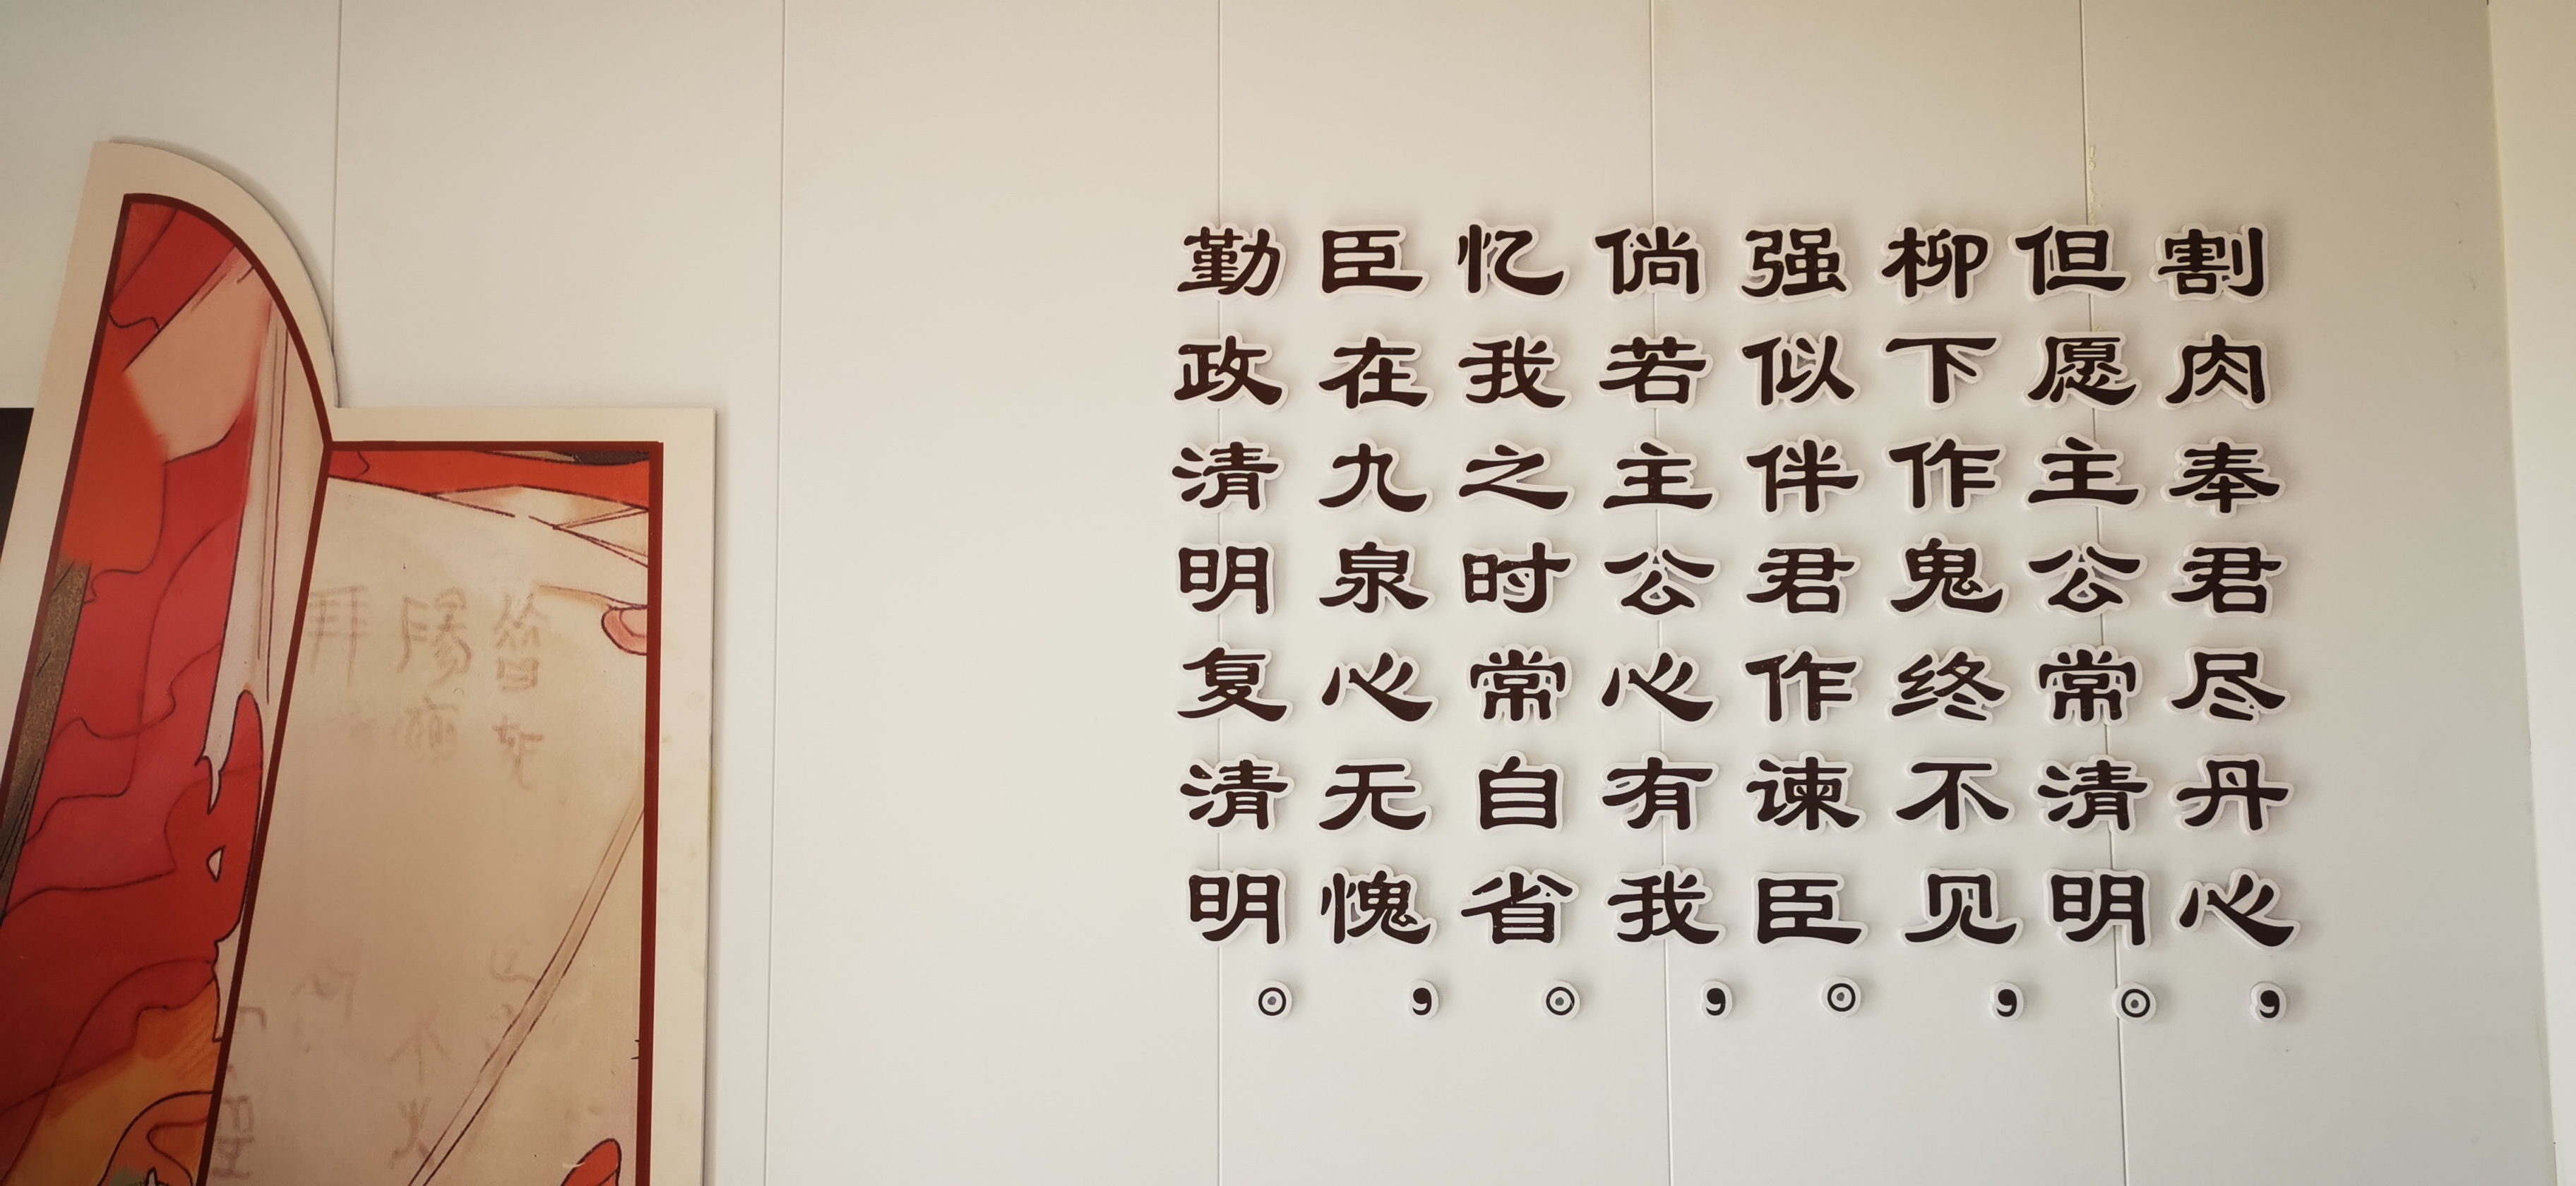 割肉奉君尽丹心，
但愿主公常清明。
柳下作鬼终不见，
强似伴君作谏臣。
倘若主公心有我，
忆我之时常自省。
臣在九泉心无愧，
勤政清明复清明。